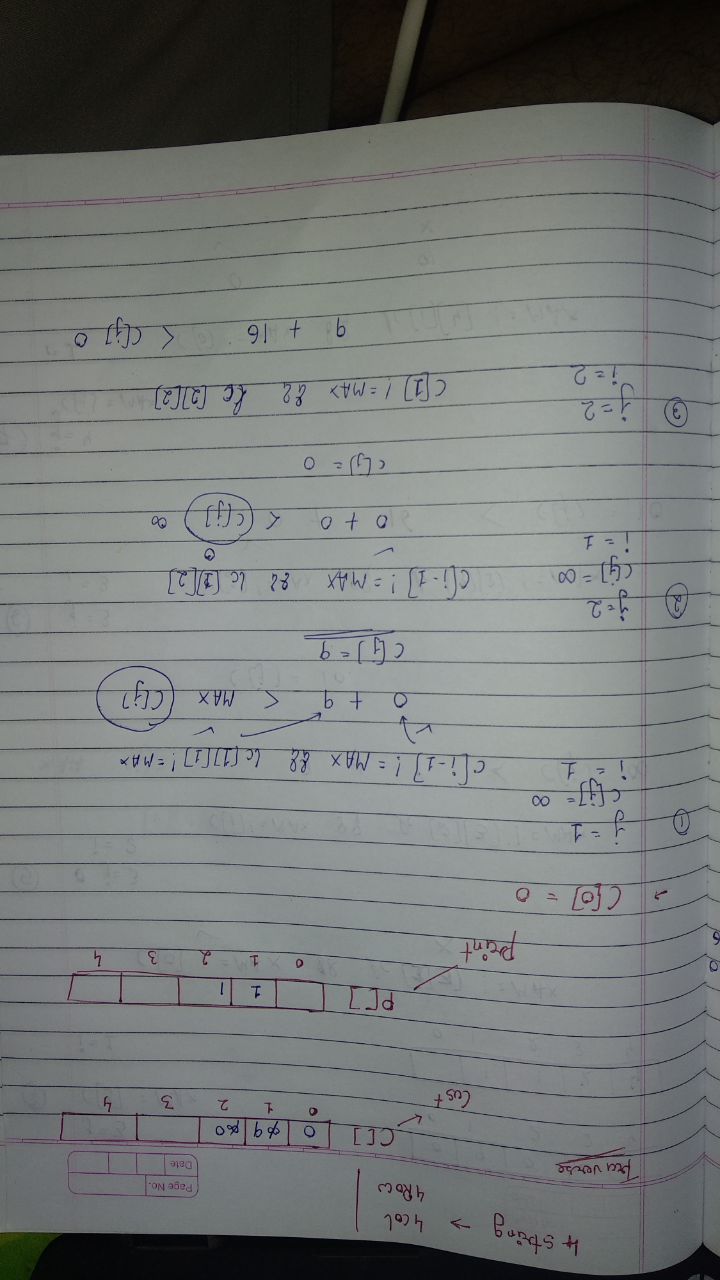 4 string → 4 col
4 Row
Page No.
Date
Traverse
C[] 0 ∞9 ∞0
0 1 2 3 4
Cost
P[] 1 1
0 1 2 3 4
print
→ C[0] = 0
① j = 1
C[j] = ∞
i = 1 C[i-1] != MAX && lc[1][1] != MAX
✓ ✓
0 + 9 < MAX C[j]
C[j] = 9
② j=2
C[j] = ∞ C[i-1] != MAX && lc [1][2]
i = 1 ✓ 0
0 + 0 < C[j] ∞
C[j] = 0
③ j=2
i=2 C[1] != MAX && lc [2][2]
9 + 16 < C[j] 0